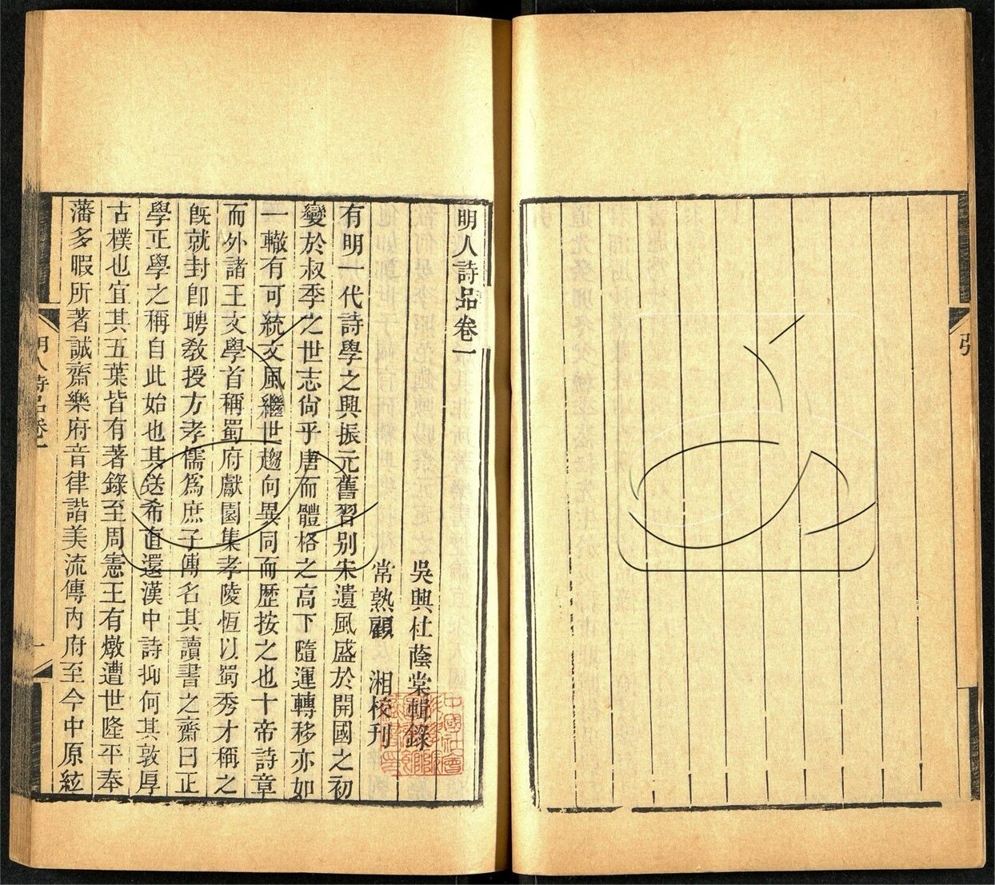 明人詩品卷一
吳興杜蔭棠輯錄
常熟顧 湘校刊
有明一代詩學之興振元舊習別宋遺風盛於開國之初
變於叔季之世志尙乎唐而體格之高下隨運轉移亦如
一轍有可統文風繼世趨向異同而歷按之也十帝詩章
而外諸王文學首稱蜀府獻園集孝陵恆以蜀秀才稱之
旣就封卽聘敎授方孝儒爲庶子傳名其讀書之齋曰正
學正學之稱自此始也其送希直還漢中詩抑何其敦厚
古樸也宜其五葉皆有著錄至周憲王有燉遭世隆平奉
藩多暇所著誠齋樂府音律諧美流傳內府至今中原絃
明人詩品卷一
一